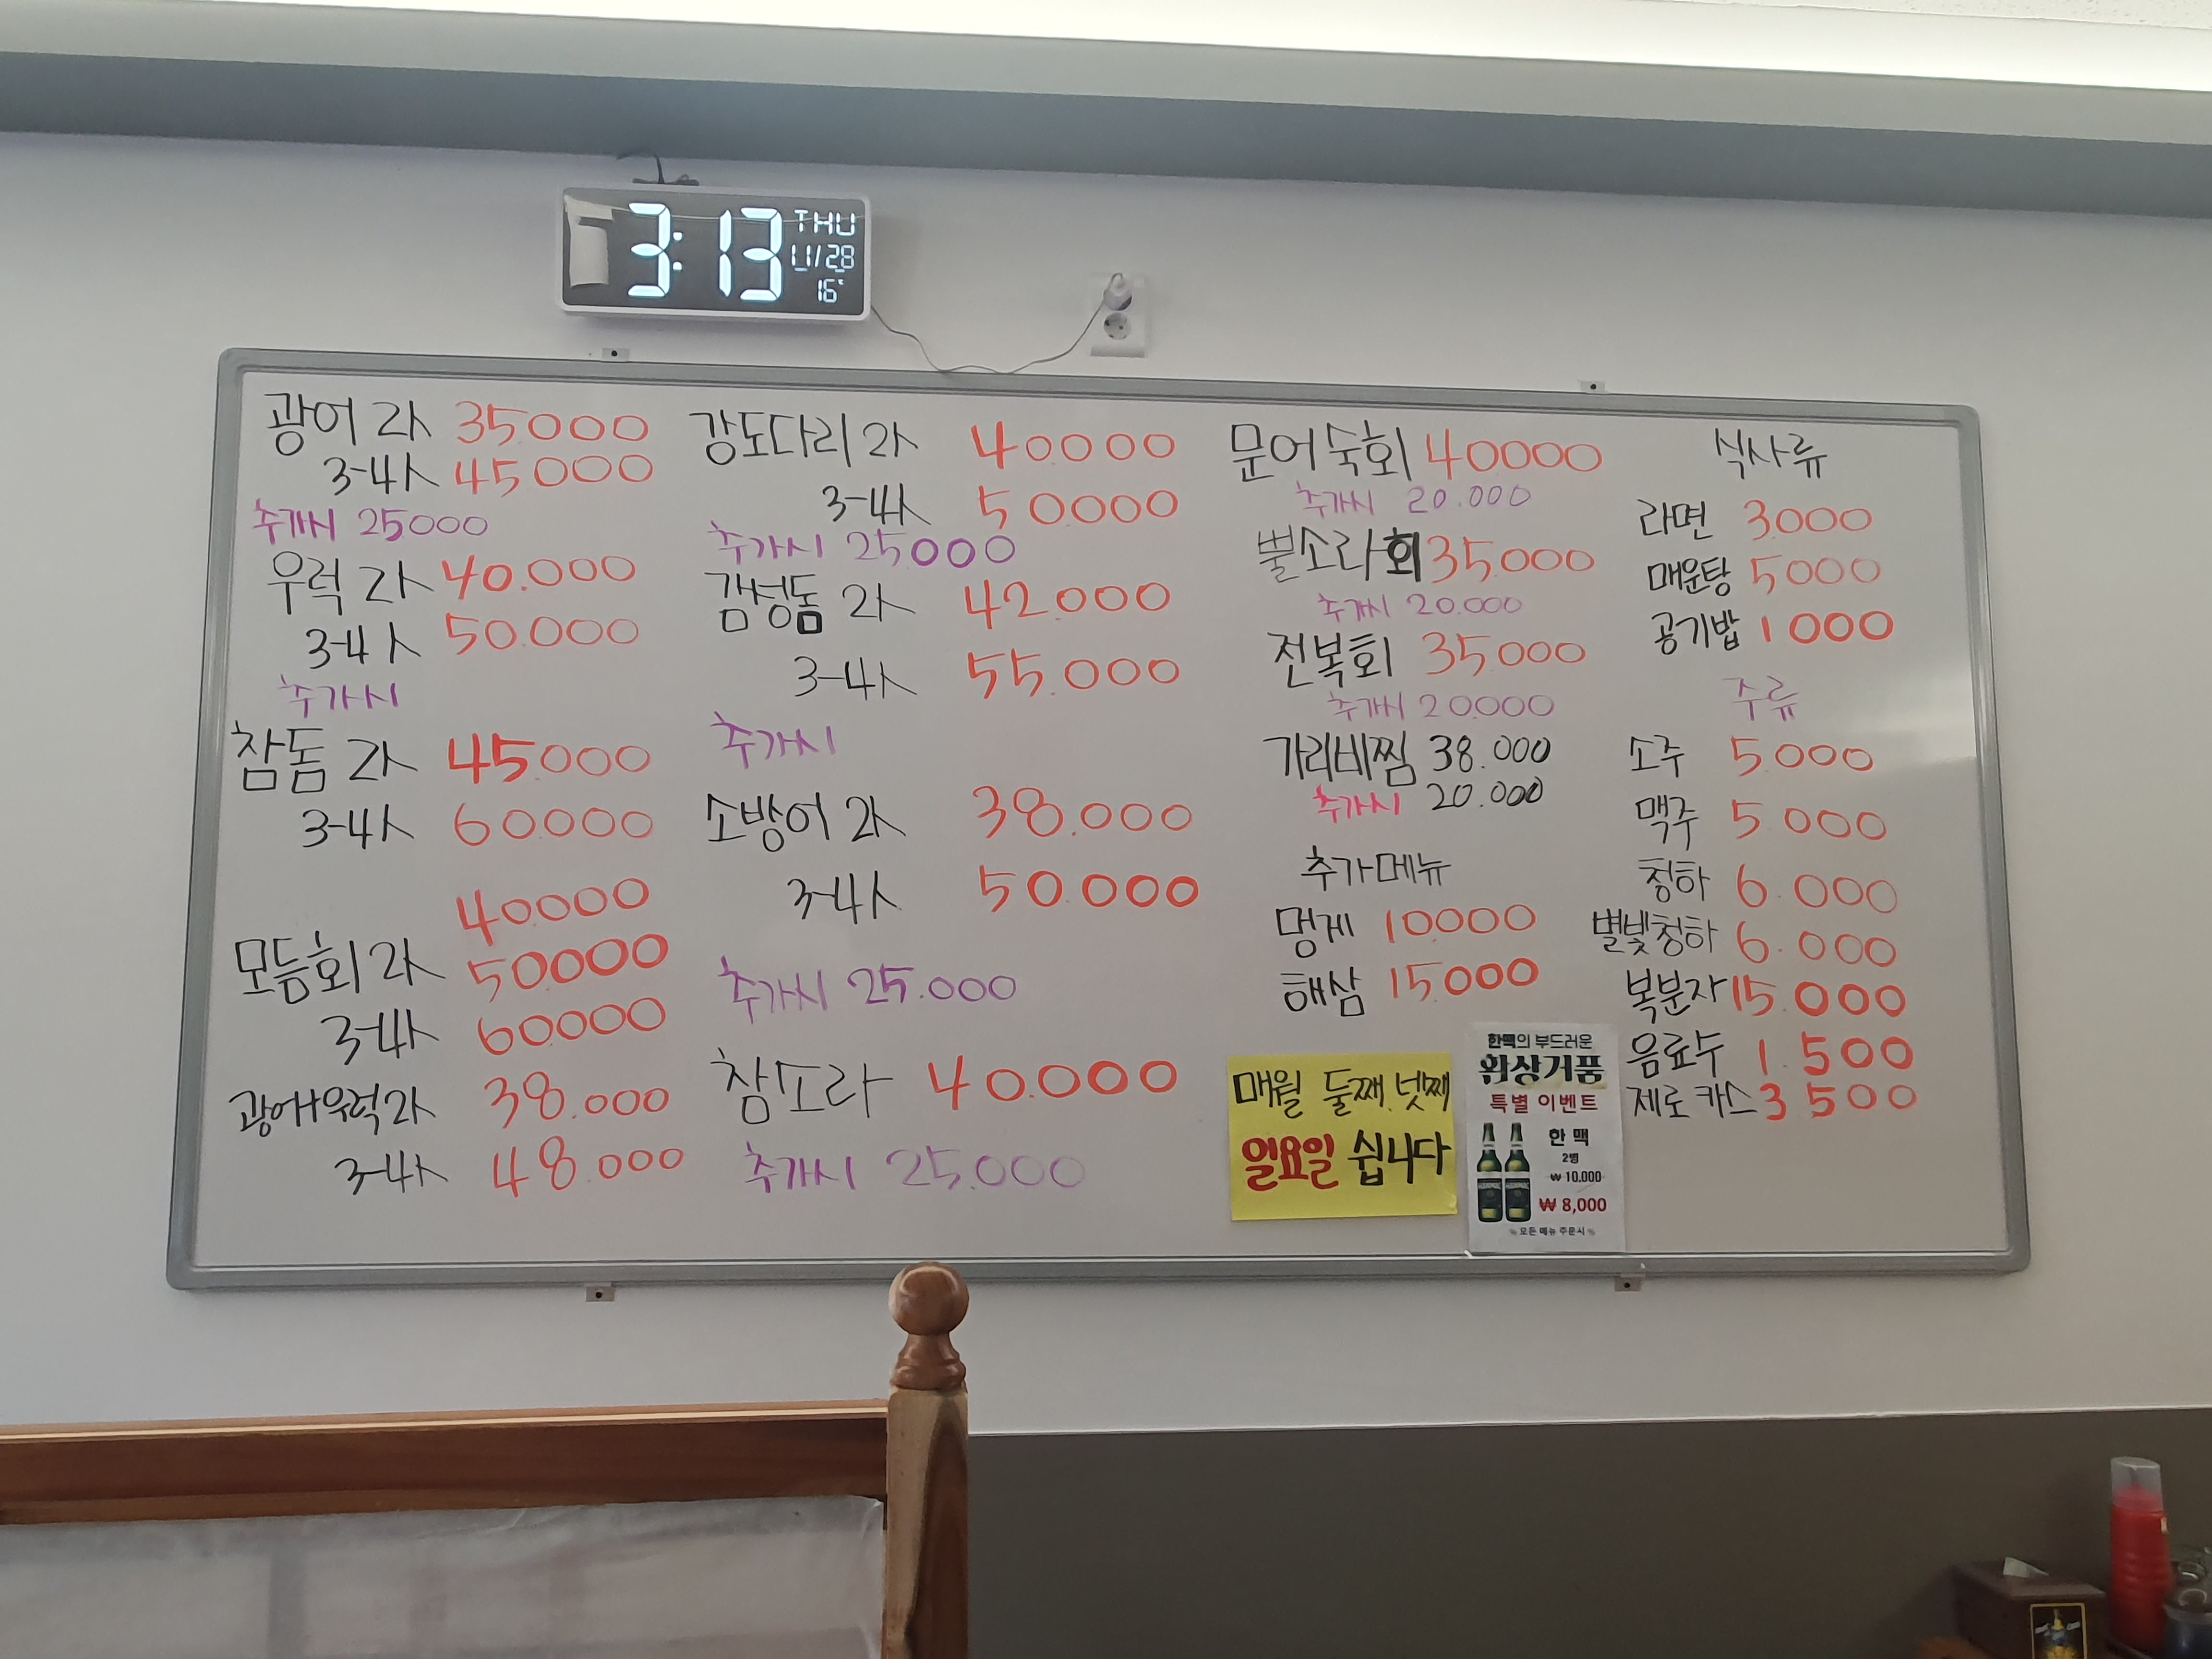 3:13
THU
11/28
16℃
광어 2人 35.000
3-4人 45.000
추가시 25000
우럭 2人 40.000
3-4人 50.000
추가시
참돔 2人 45.000
3-4人 60.000
40.000
모듬회 2人 50.000
3-4人 60.000
광어+우럭 2人 38.000
3-4人 48.000
강도다리 2人 40.000
3-4人 50.000
추가시 25.000
감성돔 2人 42.000
3-4人 55.000
추가시
소방어 2人 38.000
3-4人 50.000
추가시 25.000
참소라 40.000
추가시 25.000
문어숙회 40000
추가시 20.000
뿔소라회 35.000
추가시 20.000
전복회 35.000
추가시 20.000
가리비찜 38.000
추가시 20.000
추가메뉴
멍게 10.000
해삼 15.000
매월 둘째.넷째
일요일 쉽니다
한맥의 부드러운
환상거품
특별 이벤트
한맥
2병
₩ 10.000
₩ 8,000
모든 메뉴 주문시
식사류
라면 3.000
매운탕 5000
공기밥 1000
주류
소주 5.000
맥주 5.000
청하 6.000
별빛청하 6.000
복분자 15.000
음료수 1.500
제로카스 3500